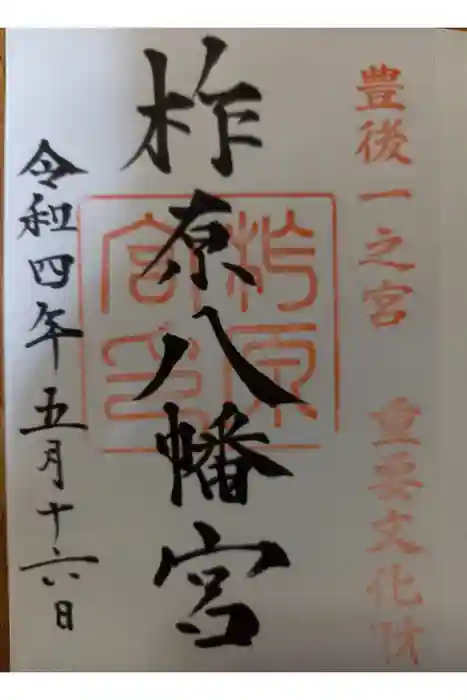 豊後一之宮 重要文化財
柞原八幡宮
柞原
宮印
令和四年五月十六日